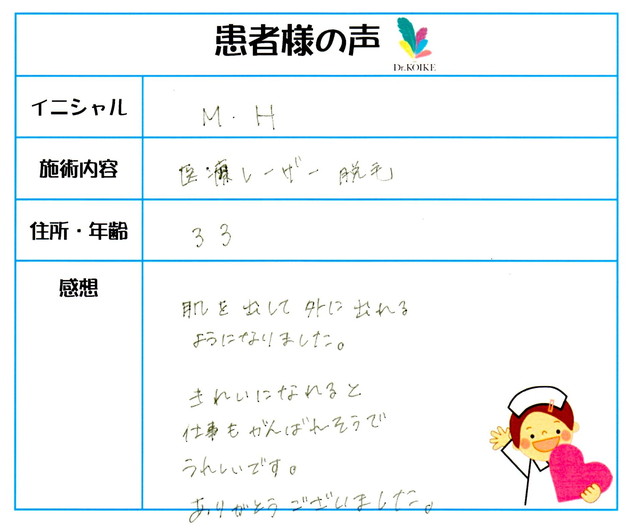 患者様の声
Dr.KOIKE
イニシャル
M・H
施術内容
医療レーザー脱毛
住所・年齢
33
感想
肌を出して外に出れる
ようになりました。
きれいになれると
仕事もがんばれそうで
うれしいです。
ありがとうございました。